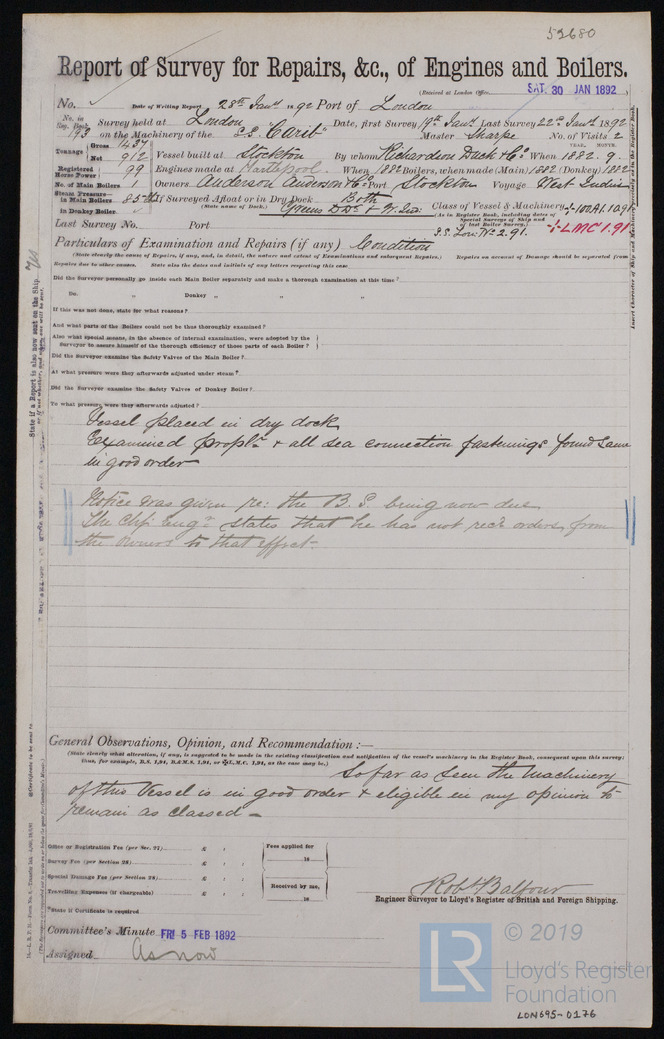 52680
Report of Survey for Repairs, &c., of Engines and Boilers.
(Received at London Office SAT. 30 JAN 1892)
No. Date of Writing Report 28th Jany 1892 Port of London
No. in Reg. Book 193 Survey held at London Date, first Survey 19th Jany Last Survey 22nd Jany 1892
on the Machinery of the S.S. "Carib" Master Sharpe No. of Visits 2
Tonnage Gross 1437 Net 912
Vessel built at Stockton By whom Richardson Duck & Co When YEAR. 1882. MONTH. 9.
Registered Horse Power 99 Engines made at Hartlepool When 1882 Boilers, when made (Main) 1882 (Donkey) 1882
No. of Main Boilers 1 Owners Anderson Anderson & Co Port Stockton Voyage West Indies
Steam Pressure in Main Boilers 85 lbs If Surveyed Afloat or in Dry Dock Both
in Donkey Boiler (State name of Dock.) Greens D.D. & W. Ind. Class of Vessel & Machinery 100A1. 10.91
(As in Register Book, including dates of Special Surveys of Ship and last Boiler Survey.)
Last Survey No. Port S.S. Lon. No 2. 91. LMC 1.91.
Particulars of Examination and Repairs (if any) Condition
(State clearly the cause of Repairs, if any, and, in detail, the nature and extent of Examinations and subsequent Repairs.) Repairs on account of Damage should be separated from
Repairs due to other causes. State also the dates and initials of any letters respecting this case.
Did the Surveyor personally go inside each Main Boiler separately and make a thorough examination at this time?
Do. „ Donkey „ „ „
If this was not done, state for what reasons?
And what parts of the Boilers could not be thus thoroughly examined?
Also what special means, in the absence of internal examination, were adopted by the
Surveyor to assure himself of the thorough efficiency of those parts of each Boiler?
Did the Surveyor examine the Safety Valves of the Main Boiler?
At what pressure were they afterwards adjusted under steam?
Did the Surveyor examine the Safety Valves of Donkey Boiler?
To what pressure were they afterwards adjusted?
Vessel placed in dry dock
Examined Proplr & all sea connection fastenings found same
in good order
Notice was given re: the B.S. being now due
The Chf Engr states that he has not recd orders from
the owners to that effect.
General Observations, Opinion, and Recommendation:—
(State clearly what alteration, if any, is suggested to be made in the existing classification and notification of the vessel's machinery in the Register Book, consequent upon this survey;
thus, for example, B.S. 1,91, B.&M.S. 1,91, or L.M.C. 1,91, as the case may be.)
So far as seen the Machinery
of this Vessel is in good order & eligible in my opinion to
remain as classed.
Office or Registration Fee (per Sec. 27) £ : : Fees applied for
Survey Fee (per Section 28) £ : : 18
Special Damage Fee (per Section 28) £ : : Received by me,
Travelling Expenses (if chargeable) £ : : 18
*State if Certificate is required
Robt Balfour
Engineer Surveyor to Lloyd's Register of British and Foreign Shipping.
Committee's Minute FRI 5 FEB 1892
Assigned As now
LR © 2019
Lloyd's Register
Foundation
LON695-0176